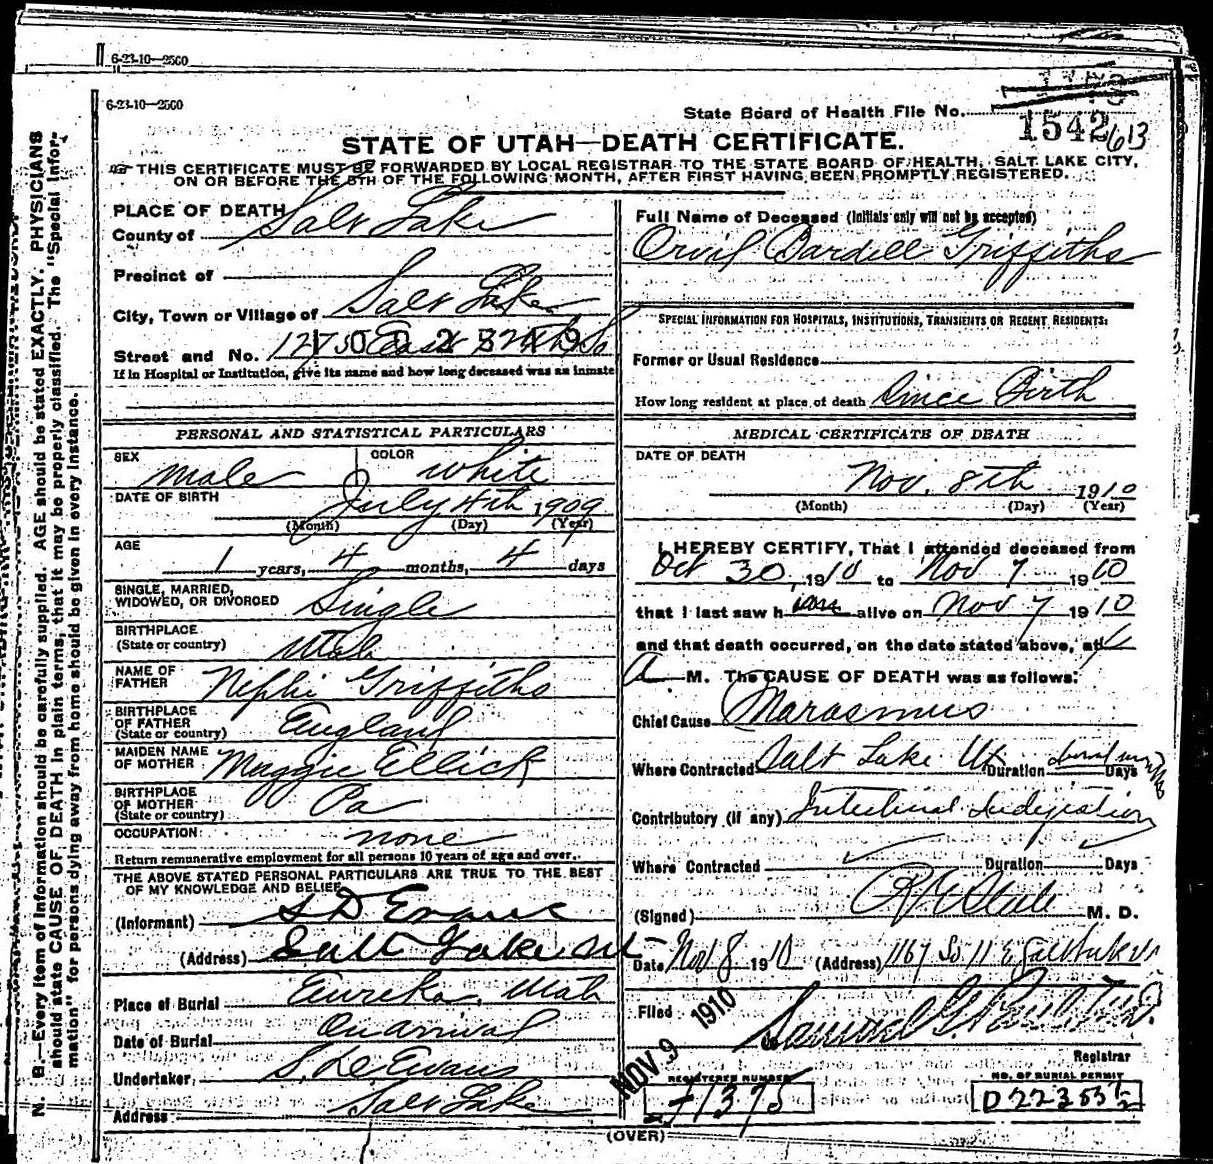 6-23-10—2500
6-23-10—2500
State Board of Health File No.
1542613
STATE OF UTAH—DEATH CERTIFICATE.
THIS CERTIFICATE MUST BE FORWARDED BY LOCAL REGISTRAR TO THE STATE BOARD OF HEALTH, SALT LAKE CITY,
ON OR BEFORE THE 5TH OF THE FOLLOWING MONTH, AFTER FIRST HAVING BEEN PROMPTLY REGISTERED.
PLACE OF DEATH
County of Salt Lake
Precinct of
City, Town or Village of Salt Lake
Street and No. East So
If in Hospital or Institution, give its name and how long deceased was an inmate
PERSONAL AND STATISTICAL PARTICULARS
SEX Male COLOR White
DATE OF BIRTH July 4th, 1909
(Month) (Day) (Year)
AGE 1 years, 4 months, 4 days
SINGLE, MARRIED,
WIDOWED, OR DIVORCED Single
BIRTHPLACE
(State or country) Utah
NAME OF
FATHER Nephi Griffiths
BIRTHPLACE
OF FATHER
(State or country) England
MAIDEN NAME
OF MOTHER Maggie Ellick
BIRTHPLACE
OF MOTHER
(State or country) Pa
OCCUPATION none
Return remunerative employment for all persons 10 years of age and over.
THE ABOVE STATED PERSONAL PARTICULARS ARE TRUE TO THE BEST
OF MY KNOWLEDGE AND BELIEF
(Informant) S D Evans
(Address) Salt Lake Ut
Place of Burial Eureka, Utah
Date of Burial On arrival
Undertaker, S. D. Evans
Address Salt Lake
Full Name of Deceased (Initials only will not be accepted)
Orvil Bardell Griffiths
SPECIAL INFORMATION FOR HOSPITALS, INSTITUTIONS, TRANSIENTS OR RECENT RESIDENTS:
Former or Usual Residence
How long resident at place of death Since Birth
MEDICAL CERTIFICATE OF DEATH
DATE OF DEATH
Nov. 8th 1910
(Month) (Day) (Year)
I HEREBY CERTIFY, That I attended deceased from
Oct 30, 1910 to Nov 7 1910
that I last saw him alive on Nov 7 1910
and that death occurred, on the date stated above, at
A. M. The CAUSE OF DEATH was as follows:
Chief Cause Marasmus
Where Contracted Salt Lake Ut Duration Days
Contributory (if any) Intestinal Indigestion
Where Contracted Duration Days
(Signed) M. D.
Date Nov 8 1910 (Address) 1167 So 11 E Salt Lake
Filed NOV 9 1910
Registrar
REGISTERED NUMBER
1375
NO. OF BURIAL PERMIT
D 2235
(OVER)
N. B.—Every item of information should be carefully supplied. AGE should be stated EXACTLY. PHYSICIANS
should state CAUSE OF DEATH in plain terms, that it may be properly classified. The "Special Infor-
mation" for persons dying away from home should be given in every instance.